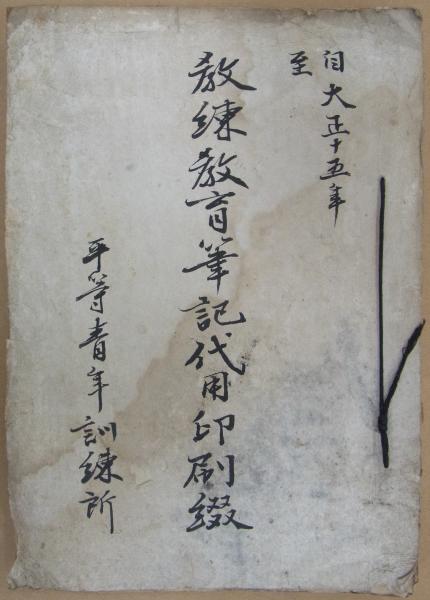 自大正十五年
至
教練教育筆記代用印刷綴
平等青年訓練所